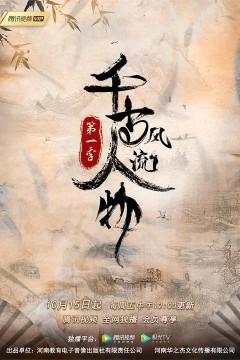 腾讯视频 VIP
千古风流人物
第一季
10月15日起 每周五中午12:00更新
腾讯视频 全网独播 会员尊享
独播平台: 腾讯视频
出品单位: 河南教育电子音像出版社有限责任公司 河南华之杰文化传播有限公司